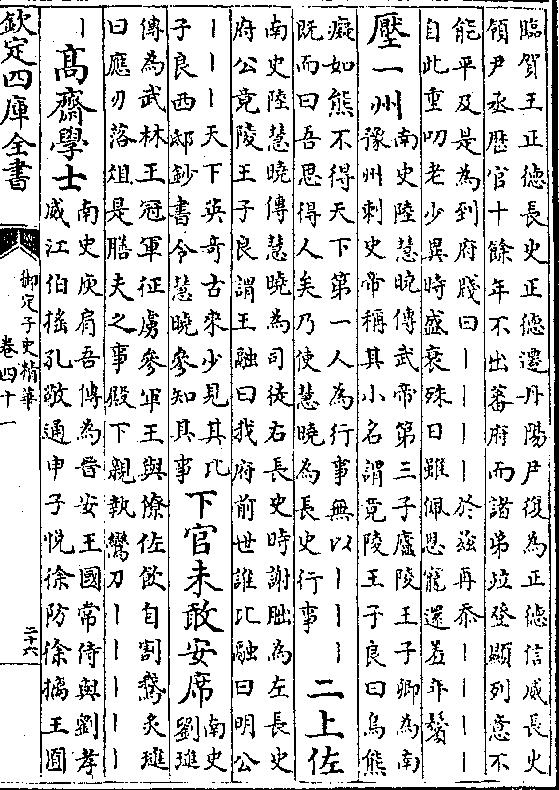 臨賀王正徳長史正徳遷丹陽尹復為正徳信威長史
領尹丞歴官十餘年不出蕃府而諸弟竝登顯列意不
能平及是為到府牋曰丨丨丨丨於兹再忝丨丨丨丨
自此重叨老少異時盛衰殊日雖佩恩寵還羞年鬢
壓一州
南史陸慧曉傳武帝第三子廬陵王子卿為南
豫州刺史帝稱其小名謂竟陵王子良曰烏熊
癡如熊不得天下第一人為行事無以丨丨丨
既而曰吾思得人矣乃使慧曉為長史行事
二上佐
南史陸慧曉傳慧曉為司徒右長史時謝朏為左長史
府公竟陵王子良謂王融曰我府前世誰比融曰明公
丨丨丨天下英奇古來少見其比
子良西邸鈔書令慧曉參知其事
下官未敢安席
南史
劉璡
傳為武林王冠軍征虜參軍王與僚佐飲自割鵞炙璡
曰應刃落俎是膳夫之事殿下親執鸞刀丨丨丨丨丨
丨
高齋學士
南史庾肩吾傳為晉安王國常侍與劉孝
威江伯揺孔敬通申子悅徐防徐摛王囿
欽定四庫全書
御定子史精華
卷四十一
二十六